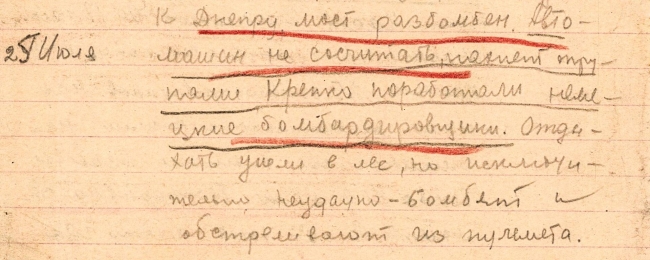 К Днепру, мост разбомбен. Авто-
25 Июля машин не сосчитать, пахнет тру-
пами Крепко поработали неме-
цкие бомбардировщики. Отды-
хать ушли в лес, но исключи-
тельно неудачно - бомбят и
обстреливают из пулемета.